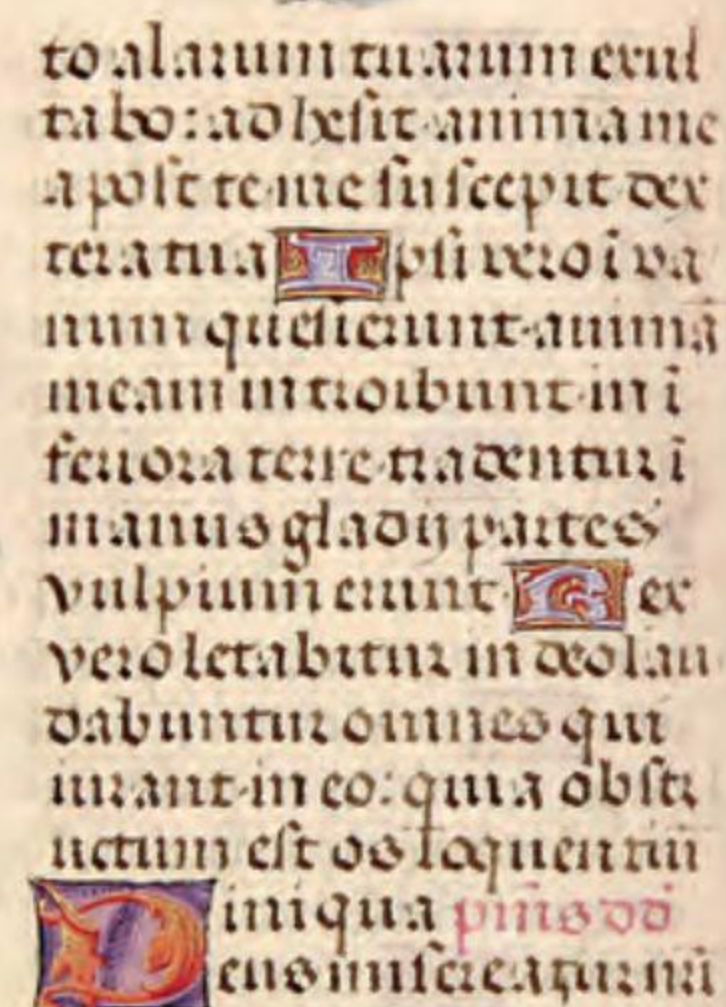 to alarum tuarum exul
tabo: adhesit anima me
a post te me suscepit dex
tera tua Ipsi vero ī va
num quesierunt animā
meam introibunt in ī
feriora terre tradentur ī
manus gladij partes
vulpium erunt Rex
vero letabitur in deo lau
dabuntur omnes qui
iurant in eo: quia obstr
uctum est os loquentiū
iniqua p̄ms dd
Deus misereatur nr̄i